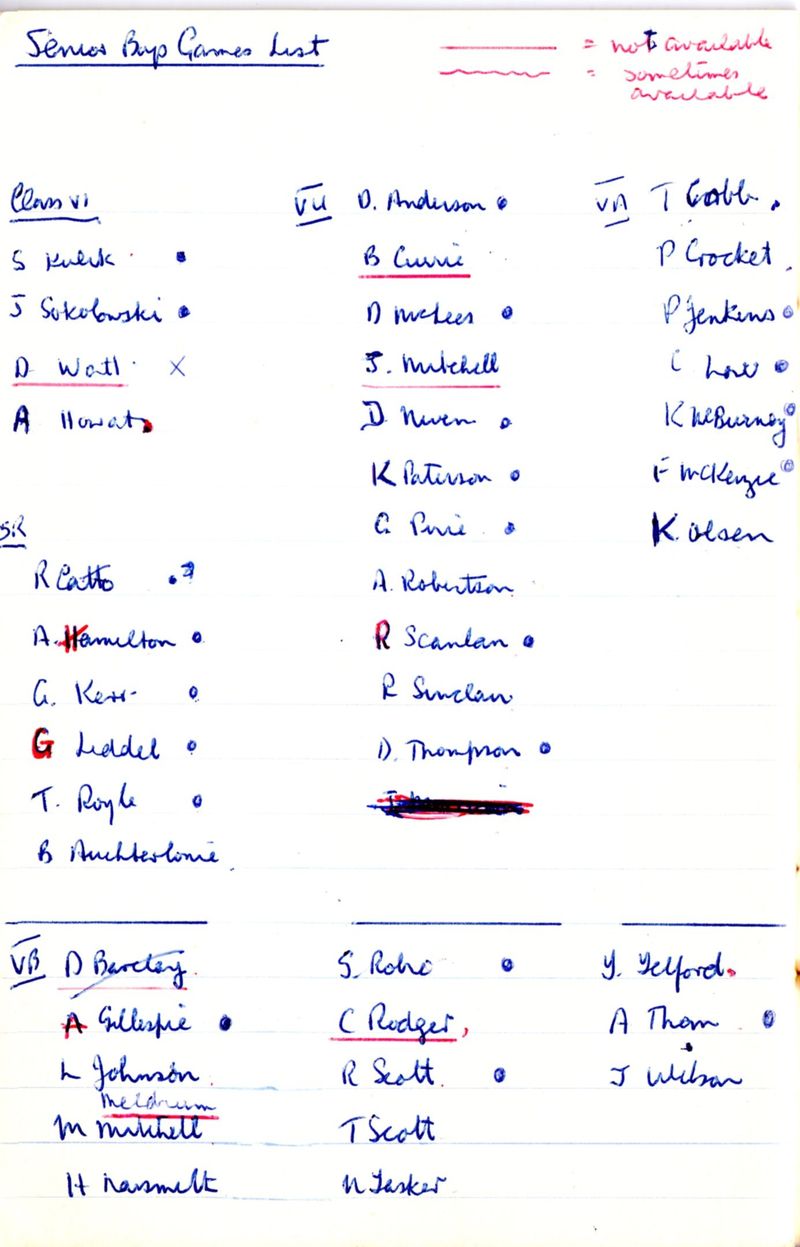 Senior Boys Games List
= not available
= sometimes
available
Class VI
S Kulik
J Sokolowski
D Watt
A Howat
SR
R Catto
A. Hamilton
G. Kerr
G Liddel
T. Royle
B Auchterlonie
VU D. Anderson
B Currie
D McLees
J. Mitchell
D Niven
K Paterson
G Pirie
A. Robertson
R Scanlan
R Sinclair
D. Thompson
VA T Cobb
P Crocket
P Jenkins
C Low
K McBurney
F McKenzie
K. Olsen
VB D Barclay
A Gillespie
L Johnson
Meldrum
M Mitchell
H
S. Robe
C Rodger
R Scott
T Scott
N Tasker
Y. Telford
A Thom
J Wilson